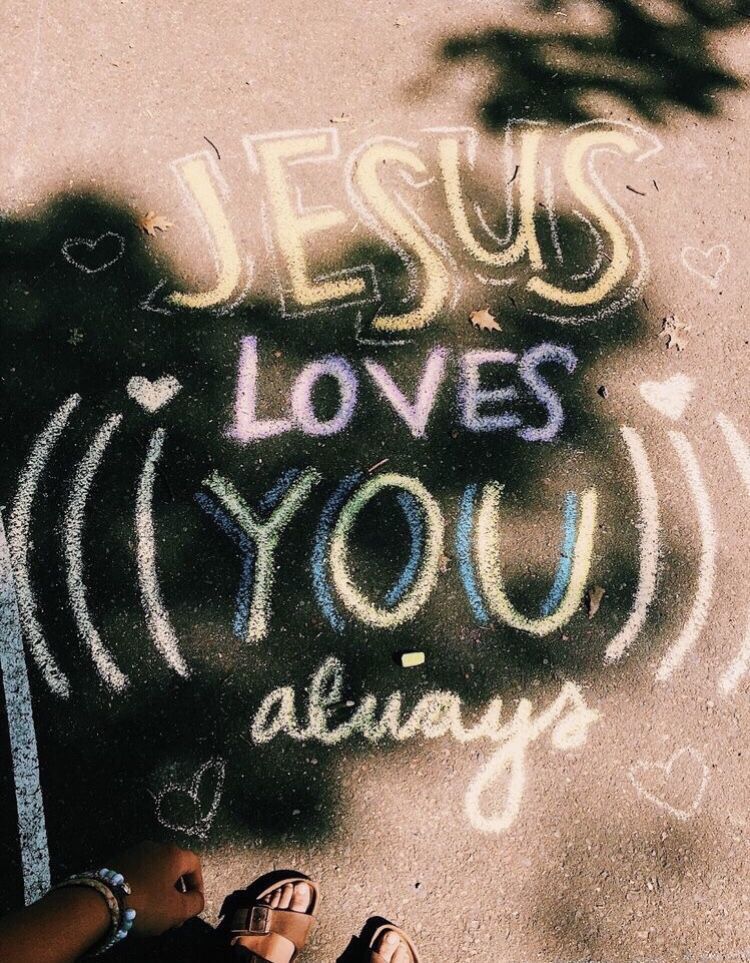 JESUS
LOVES
(((YOU)))
always